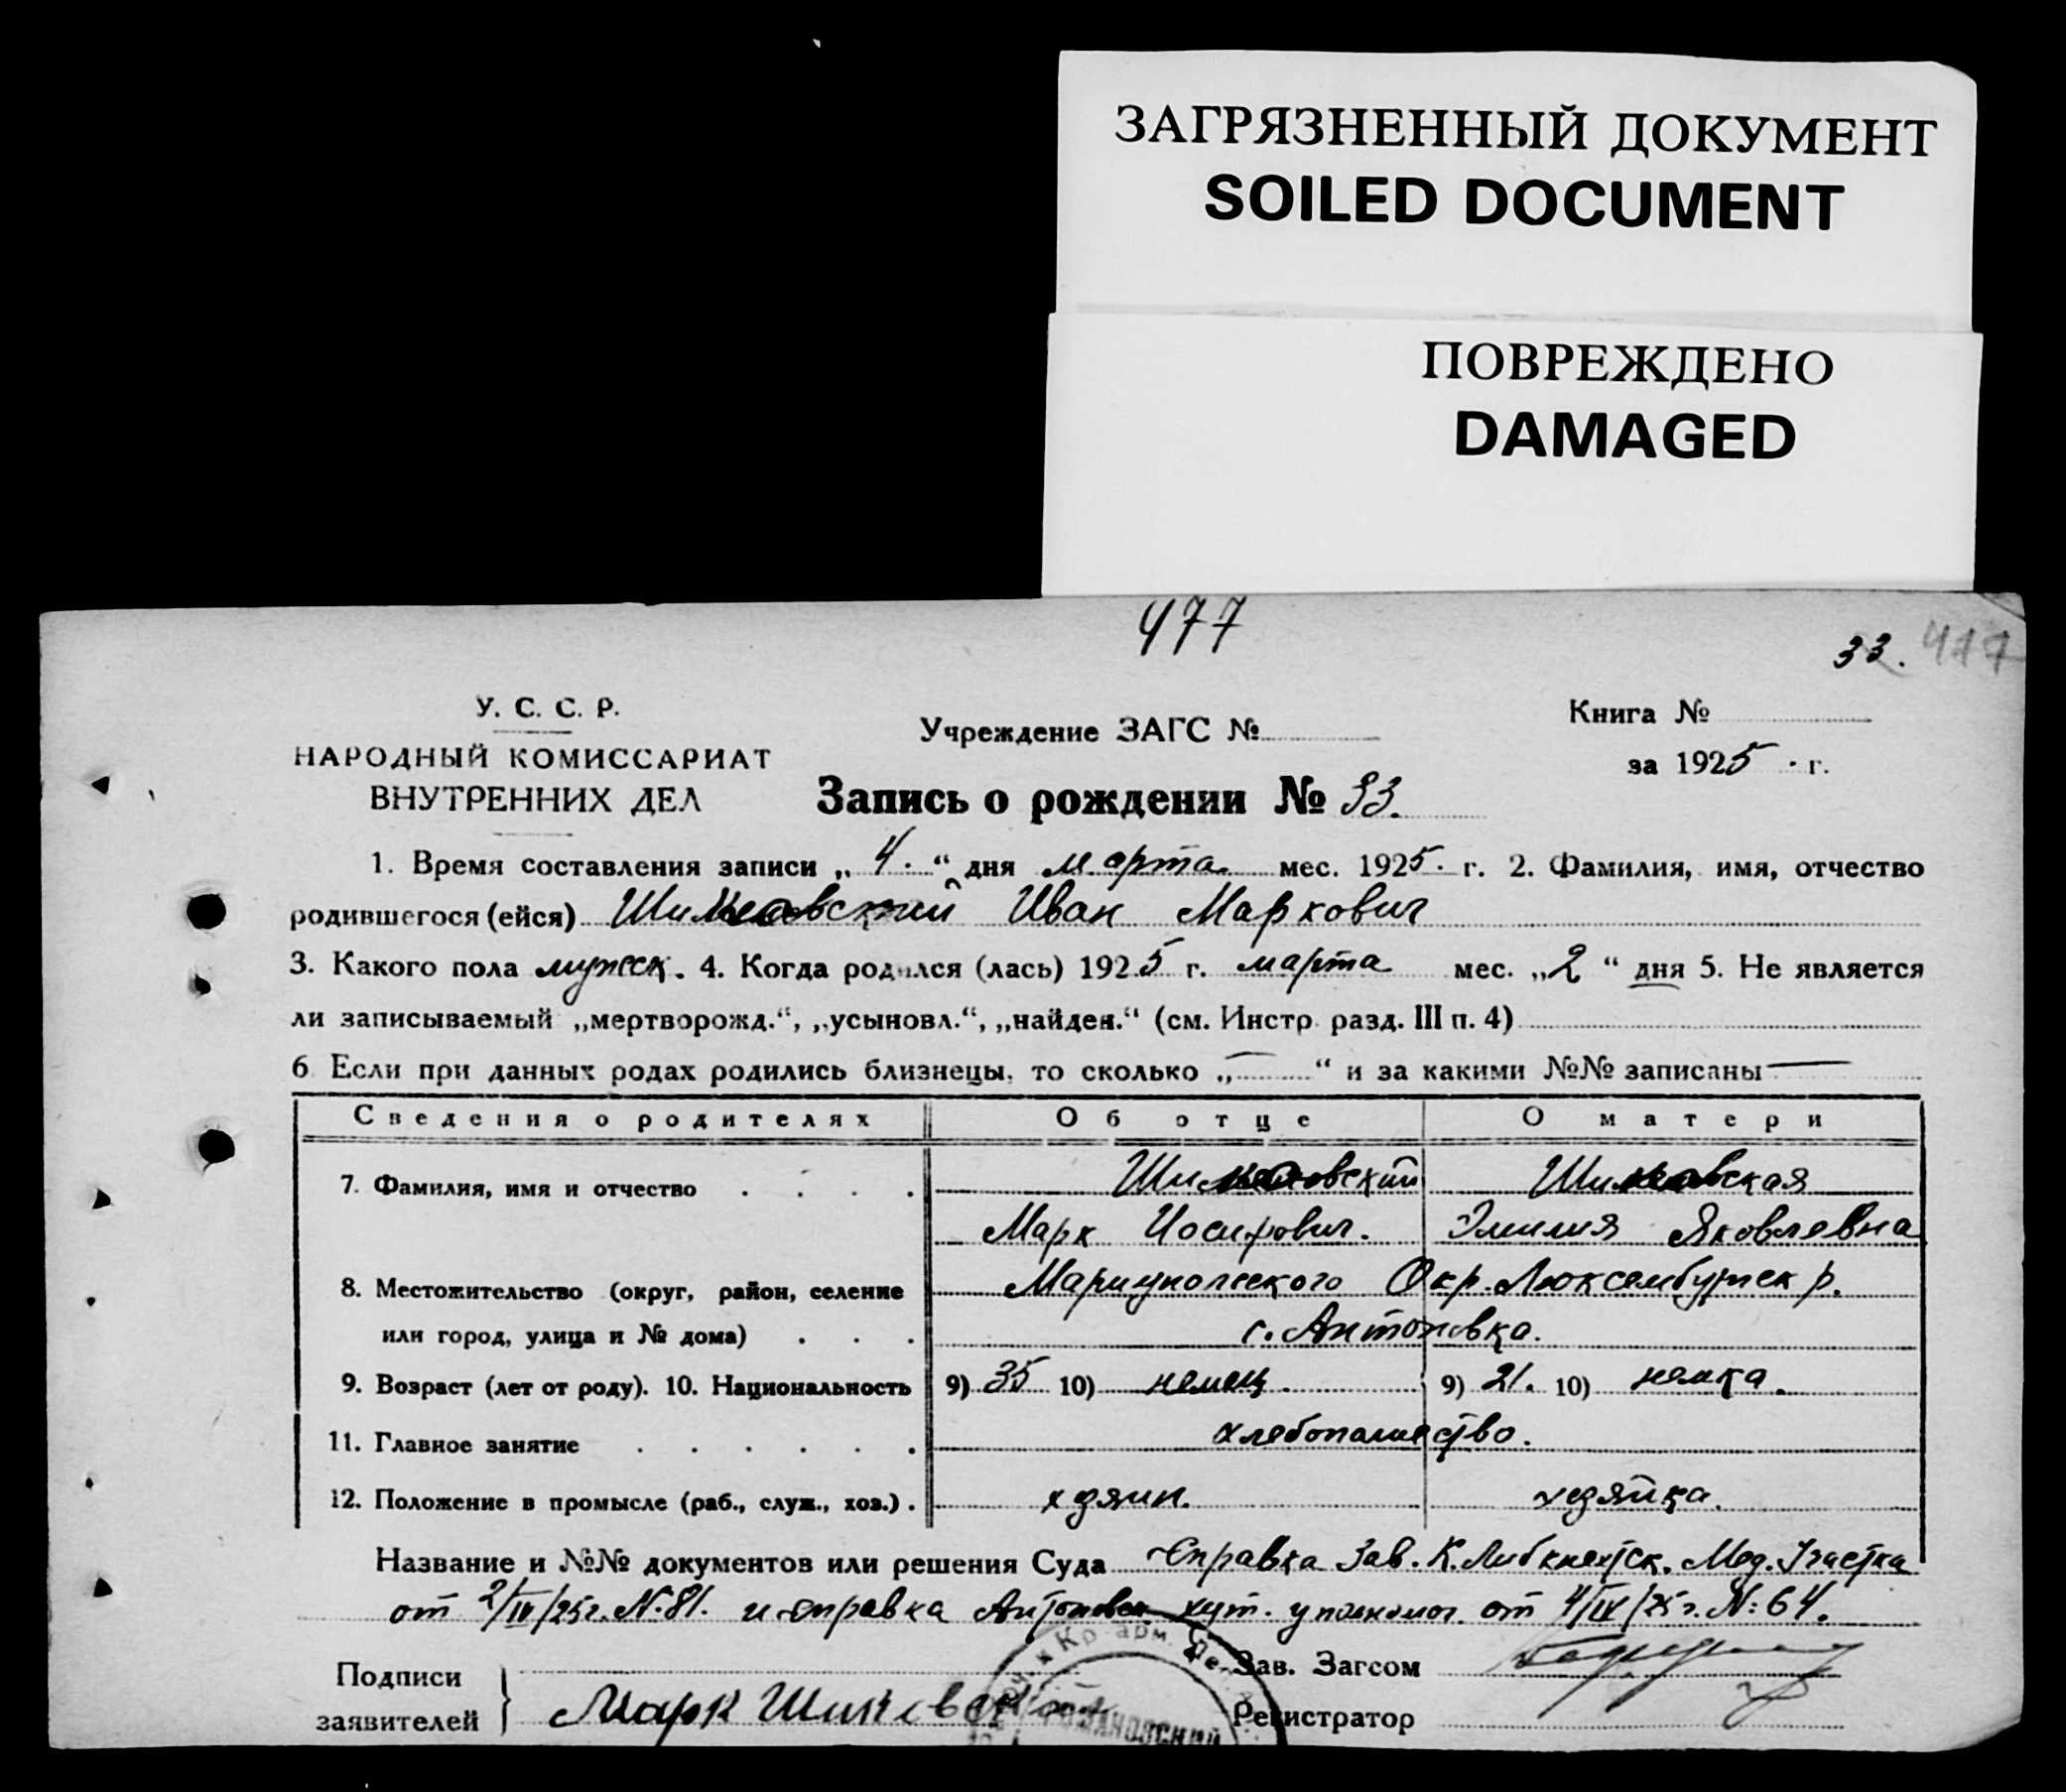 ЗАГРЯЗНЕННЫЙ ДОКУМЕНТ
SOILED DOCUMENT
ПОВРЕЖДЕНО
DAMAGED
477
33. 477
У. С. С. Р.
НАРОДНЫЙ КОМИССАРИАТ
ВНУТРЕННИХ ДЕЛ
Учреждение ЗАГС №
Книга №
за 1925 г.
Запись о рождении № 33.
1. Время составления записи „4.“ дня марта мес. 1925. г. 2. Фамилия, имя, отчество
родившегося (ейся) Иван Маркович
3. Какого пола мужеск. 4. Когда родился (лась) 1925 г. марта мес. „2“ дня 5. Не является
ли записываемый „мертворожд.“, „усыновл.“, „найден.“ (см. Инстр. разд. III п. 4)
6 Если при данных родах родились близнецы, то сколько „—“ и за какими №№ записаны —
Сведения о родителях Об отце О матери
7. Фамилия, имя и отчество
Марк Иосифович. Эмилия Яковлевна
8. Местожительство (округ, район, селение
или город, улица и № дома)
Мариупольского Окр. Люксембургск р.
с. Антоновка.
9. Возраст (лет от роду). 10. Национальность 9) 35 10) немец. 9) 21. 10) немка.
11. Главное занятие хлебопашество.
12. Положение в промысле (раб., служ., хоз.). хозяин. хозяйка.
Название и №№ документов или решения Суда Справка Зав. К. Либкнехтск. Мед. Участка
от 2/IV/25г. №81. и справка Антоновск. хут. уполномог. от 4/IV/25г. №:64.
Подписи
заявителей
Марк
Зав. Загсом
Регистратор